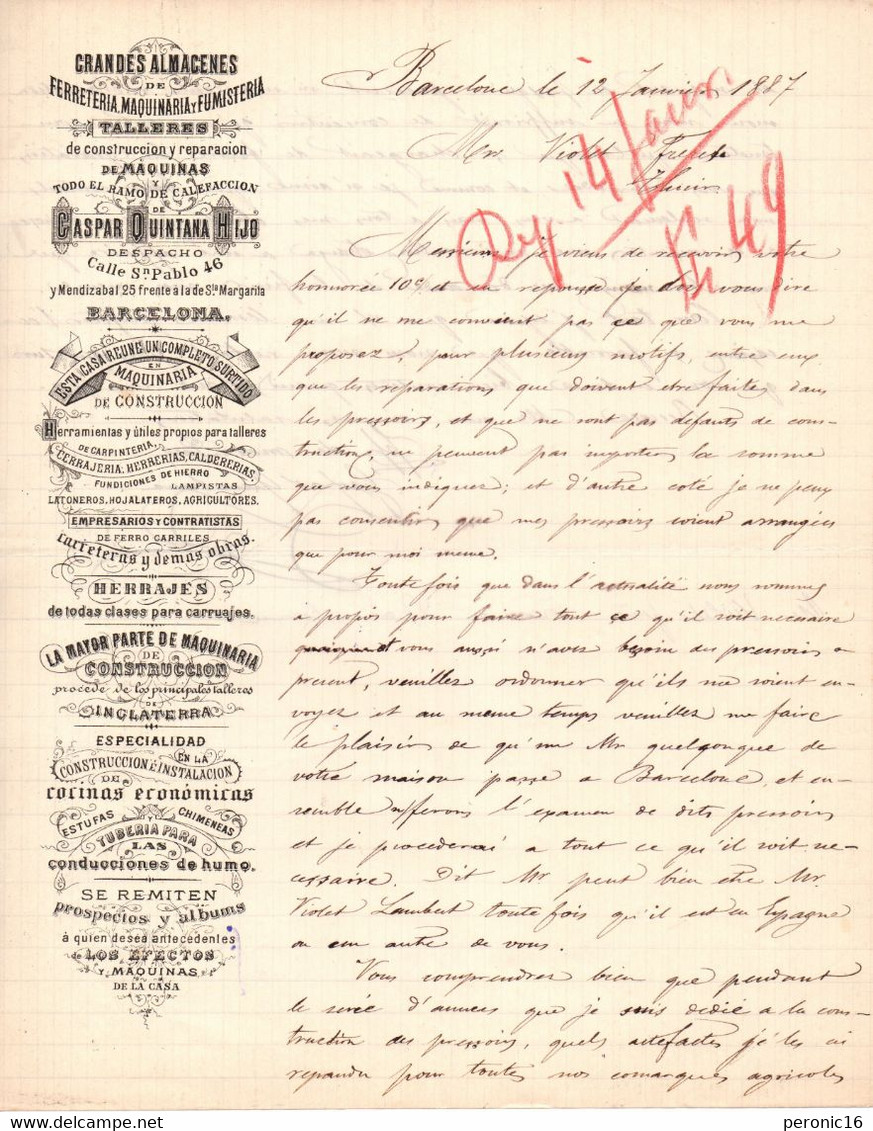 GRANDES ALMACENES
DE
FERRETERIA, MAQUINARIA Y FUMISTERIA
TALLERES
de construccion y reparacion
DE MÁQUINAS
Y
TODO EL RAMO DE CALEFACCION
DE
GASPAR QUINTANA HIJO
DESPACHO
Calle Sn. Pablo 46
y Mendizabal 25 frente á la de Sta. Margarita
BARCELONA.
ESTA CASA REUNE UN COMPLETO SURTIDO
EN
MAQUINARIA
DE CONSTRUCCION
Herramientas y útiles propios para talleres
DE CARPINTERIA,
CERRAJERIA, HERRERIAS, CALDERERIAS,
FUNDICIONES DE HIERRO
LAMPISTAS
LATONEROS, HOJALATEROS, AGRICULTORES.
EMPRESARIOS Y CONTRATISTAS
DE FERRO CARRILES
carreteras y demas obras.
HERRAJES
de todas clases para carruajes.
LA MAYOR PARTE DE MAQUINARIA
DE
CONSTRUCCION
procede de los principales talleres
DE
INGLATERRA
ESPECIALIDAD
EN LA
CONSTRUCCION É INSTALACION
DE
cocinas económicas
ESTUFAS Y CHIMENEAS
TUBERIA PARA
LAS
conducciones de humo.
SE REMITEN
prospecios y albums
á quien desea antecedentes
de LOS EFECTOS
Y MÁQUINAS
DE LA CASA
Barcelone le 12 Janvier 1887
Mrs. Violet Freres
Thuir
14 Janv.
49
Messieurs je viens de recevoir votre
honnorée 10ct et en reponsse je dois vous dire
qu'il ne me convient pas çe que vous me
proposez, pour plusieurs motifs, entre eux
que les reparations que doivent etre faites dans
les pressoirs, et que ne sont pas defauts de cons-
truction, ne peuvent pas importer la somme
que vous indiquez; et d'autre coté je ne peux
pas consentir que mes pressoirs soient arrangées
que pour moi meme.
Toute fois que dans l'actualité nous sommes
a propos pour faire tout çe qu'il soit necesaire
et vous aussi n'avez besoin des pressoirs a
present, veuillez ordonner qu'ils me soient en-
voyez et au meme temps veuillez me faire
le plaisir de qu'un Mr quelqonque de
votre maison passe a Barcelone, et en-
semble n/ferons l'examen de dits pressoirs
et je procederai a tout ce qu'il soit ne-
cessaire. Dit Mr peut bien etre Mr.
Violet Lambert toute fois qu'il est en Espagne
ou un autre de vous.
Vous comprendrez bien que pendant
le serée d'annees que je suis dedié a la cons-
truction des pressoirs, quels artefactes je les ai
repandu pour toutes nos comarques agricoles
peronic16